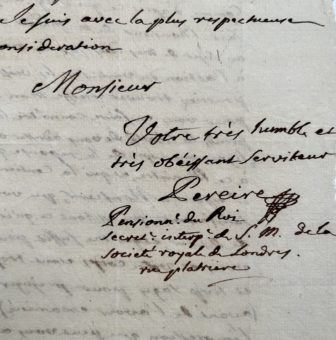 Je suis avec la plus respectueuse
consideration
Monsieur
Votre très humble et
très obéissant Serviteur
Pereire
Pensionn.r du Roi
secret.e interp.e de S. M. de la
Société royale de Londres.
rue platriere